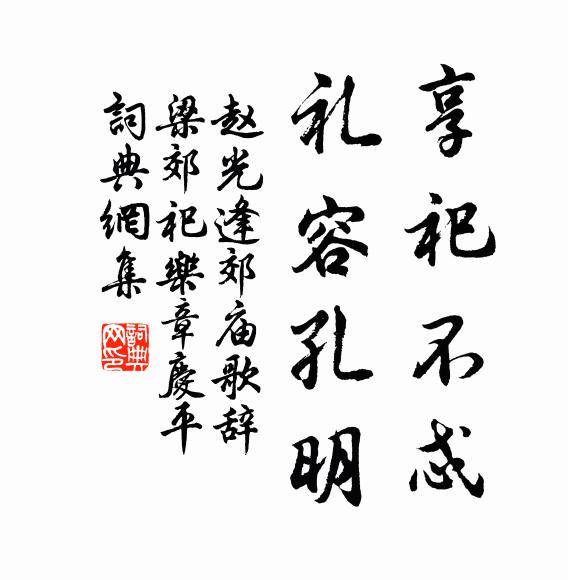 享祀不忒
礼容孔明
赵光逢郊庙歌辞
梁郊祀樂章慶平
詞典網集
詞典网印